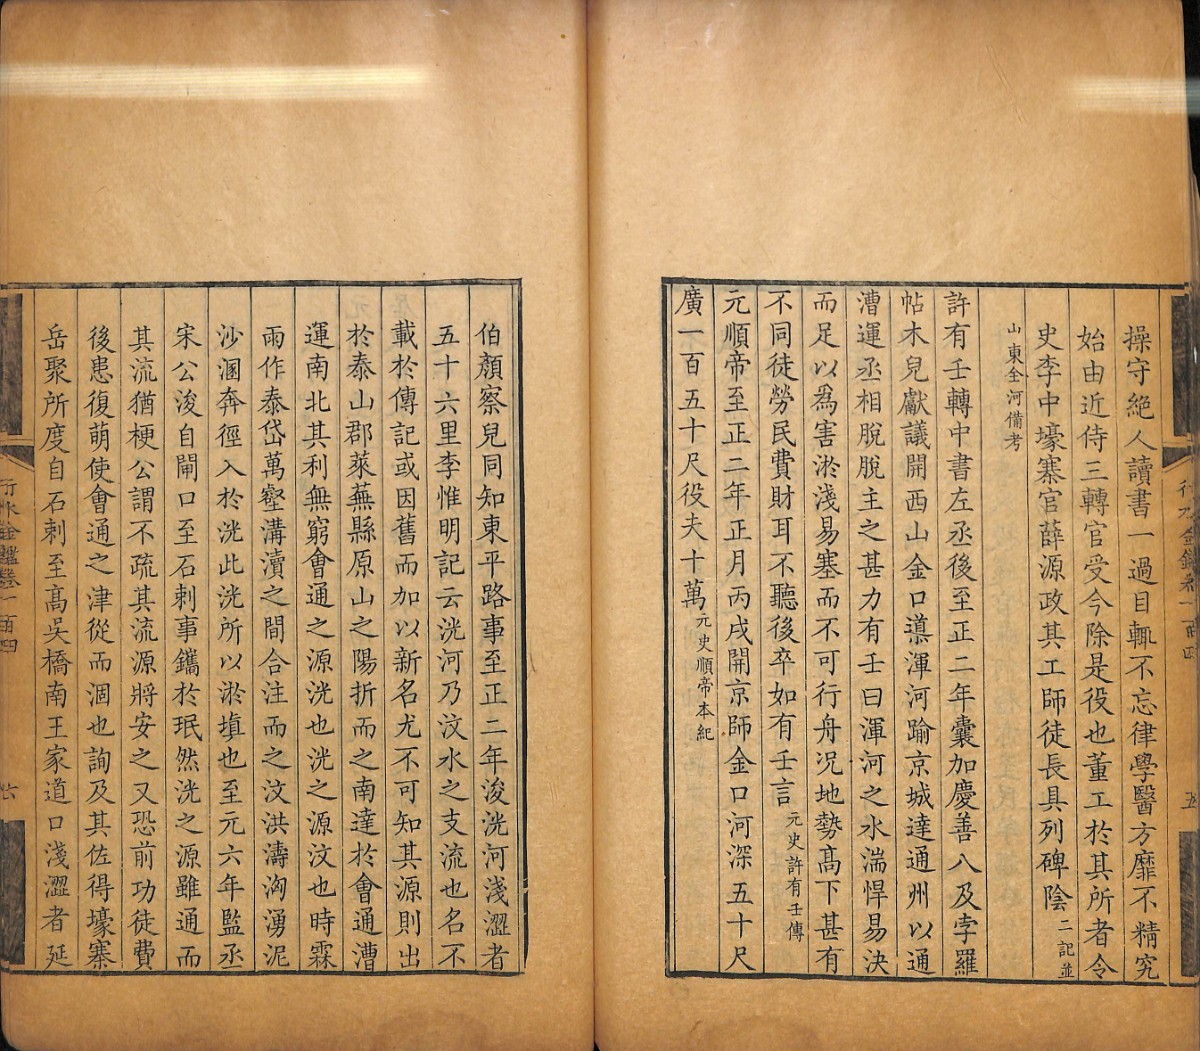 操守絶人讀書一過目輒不忘律學醫方靡不精究
始由近侍三轉官受今除是役也董工於其所者令
史李中壕寨官薛源政其工師徒長具列碑陰二記並
山東全河備考
許有壬轉中書左丞後至正二年囊加慶善八及孛羅
帖木兒獻議開西山金口導渾河踰京城達通州以通
漕運丞相脫脫主之甚力有壬曰渾河之水湍悍易決
而足以為害淤淺易塞而不可行舟况地勢髙下甚有
不同徒勞民費財耳不聽後卒如有壬言元史許有壬傳
元順帝至正二年正月丙戌開京師金口河深五十尺
廣一百五十尺役夫十萬元史順帝本紀
伯顏察兒同知東平路事至正二年浚洸河淺澀者
五十六里李惟明記云洸河乃汶水之支流也名不
載於傳記或因舊而加以新名尤不可知其源則出
於泰山郡萊蕪縣原山之陽折而之南達於會通漕
運南北其利無窮會通之源洸也洸之源汶也時霖
雨作泰岱萬壑溝瀆之間合注而之汶洪濤洶湧泥
沙溷奔徑入於洸此洸所以淤填也至元六年監丞
宋公浚自閘口至石剌事鐫於珉然洸之源雖通而
其流猶梗公謂不疏其流源將安之又恐前功徒費
後患復萌使會通之津從而涸也詢及其佐得壕寨
岳聚所度自石剌至髙吳橋南王家道口淺澀者延
行水金鑑卷一百四